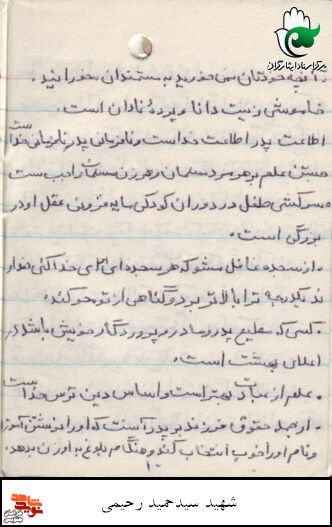 مرکز اسناد ایثارگران
. آنچه خودتان می خورید به مستمندان بخورانید.
خاموشی زینت دانا و پردهٔ نادان است.
اطاعت پدر اطاعت خداست و نافرمانی پدر نافرمانی خداست
جستن علم بر هر مرد مسلمان و هر زن مسلمان واجب ست
سرکشی طفل در دوران کودکی مایه فزونی عقل او در
بزرگی است.
. از سجده غافل مشو که هر سجده ای برای خدا کنی خداوند
یکدرجه ترا بالاتر برد و گناهی از تو محو کند.
. کسی که مطیع پدر و مادر و پروردگار خویش باشد در
اعلای بهشت است.
. علم از عبادت بهتر است و اساس دین ترس خداست
. از جمله حقوق فرزند بر پدر آنست که او را نوشتن آموزد
و نام او را خوب انتخاب کند و هنگام بلوغ به او زن بدهد.
شهید سیدحمید رحیمی